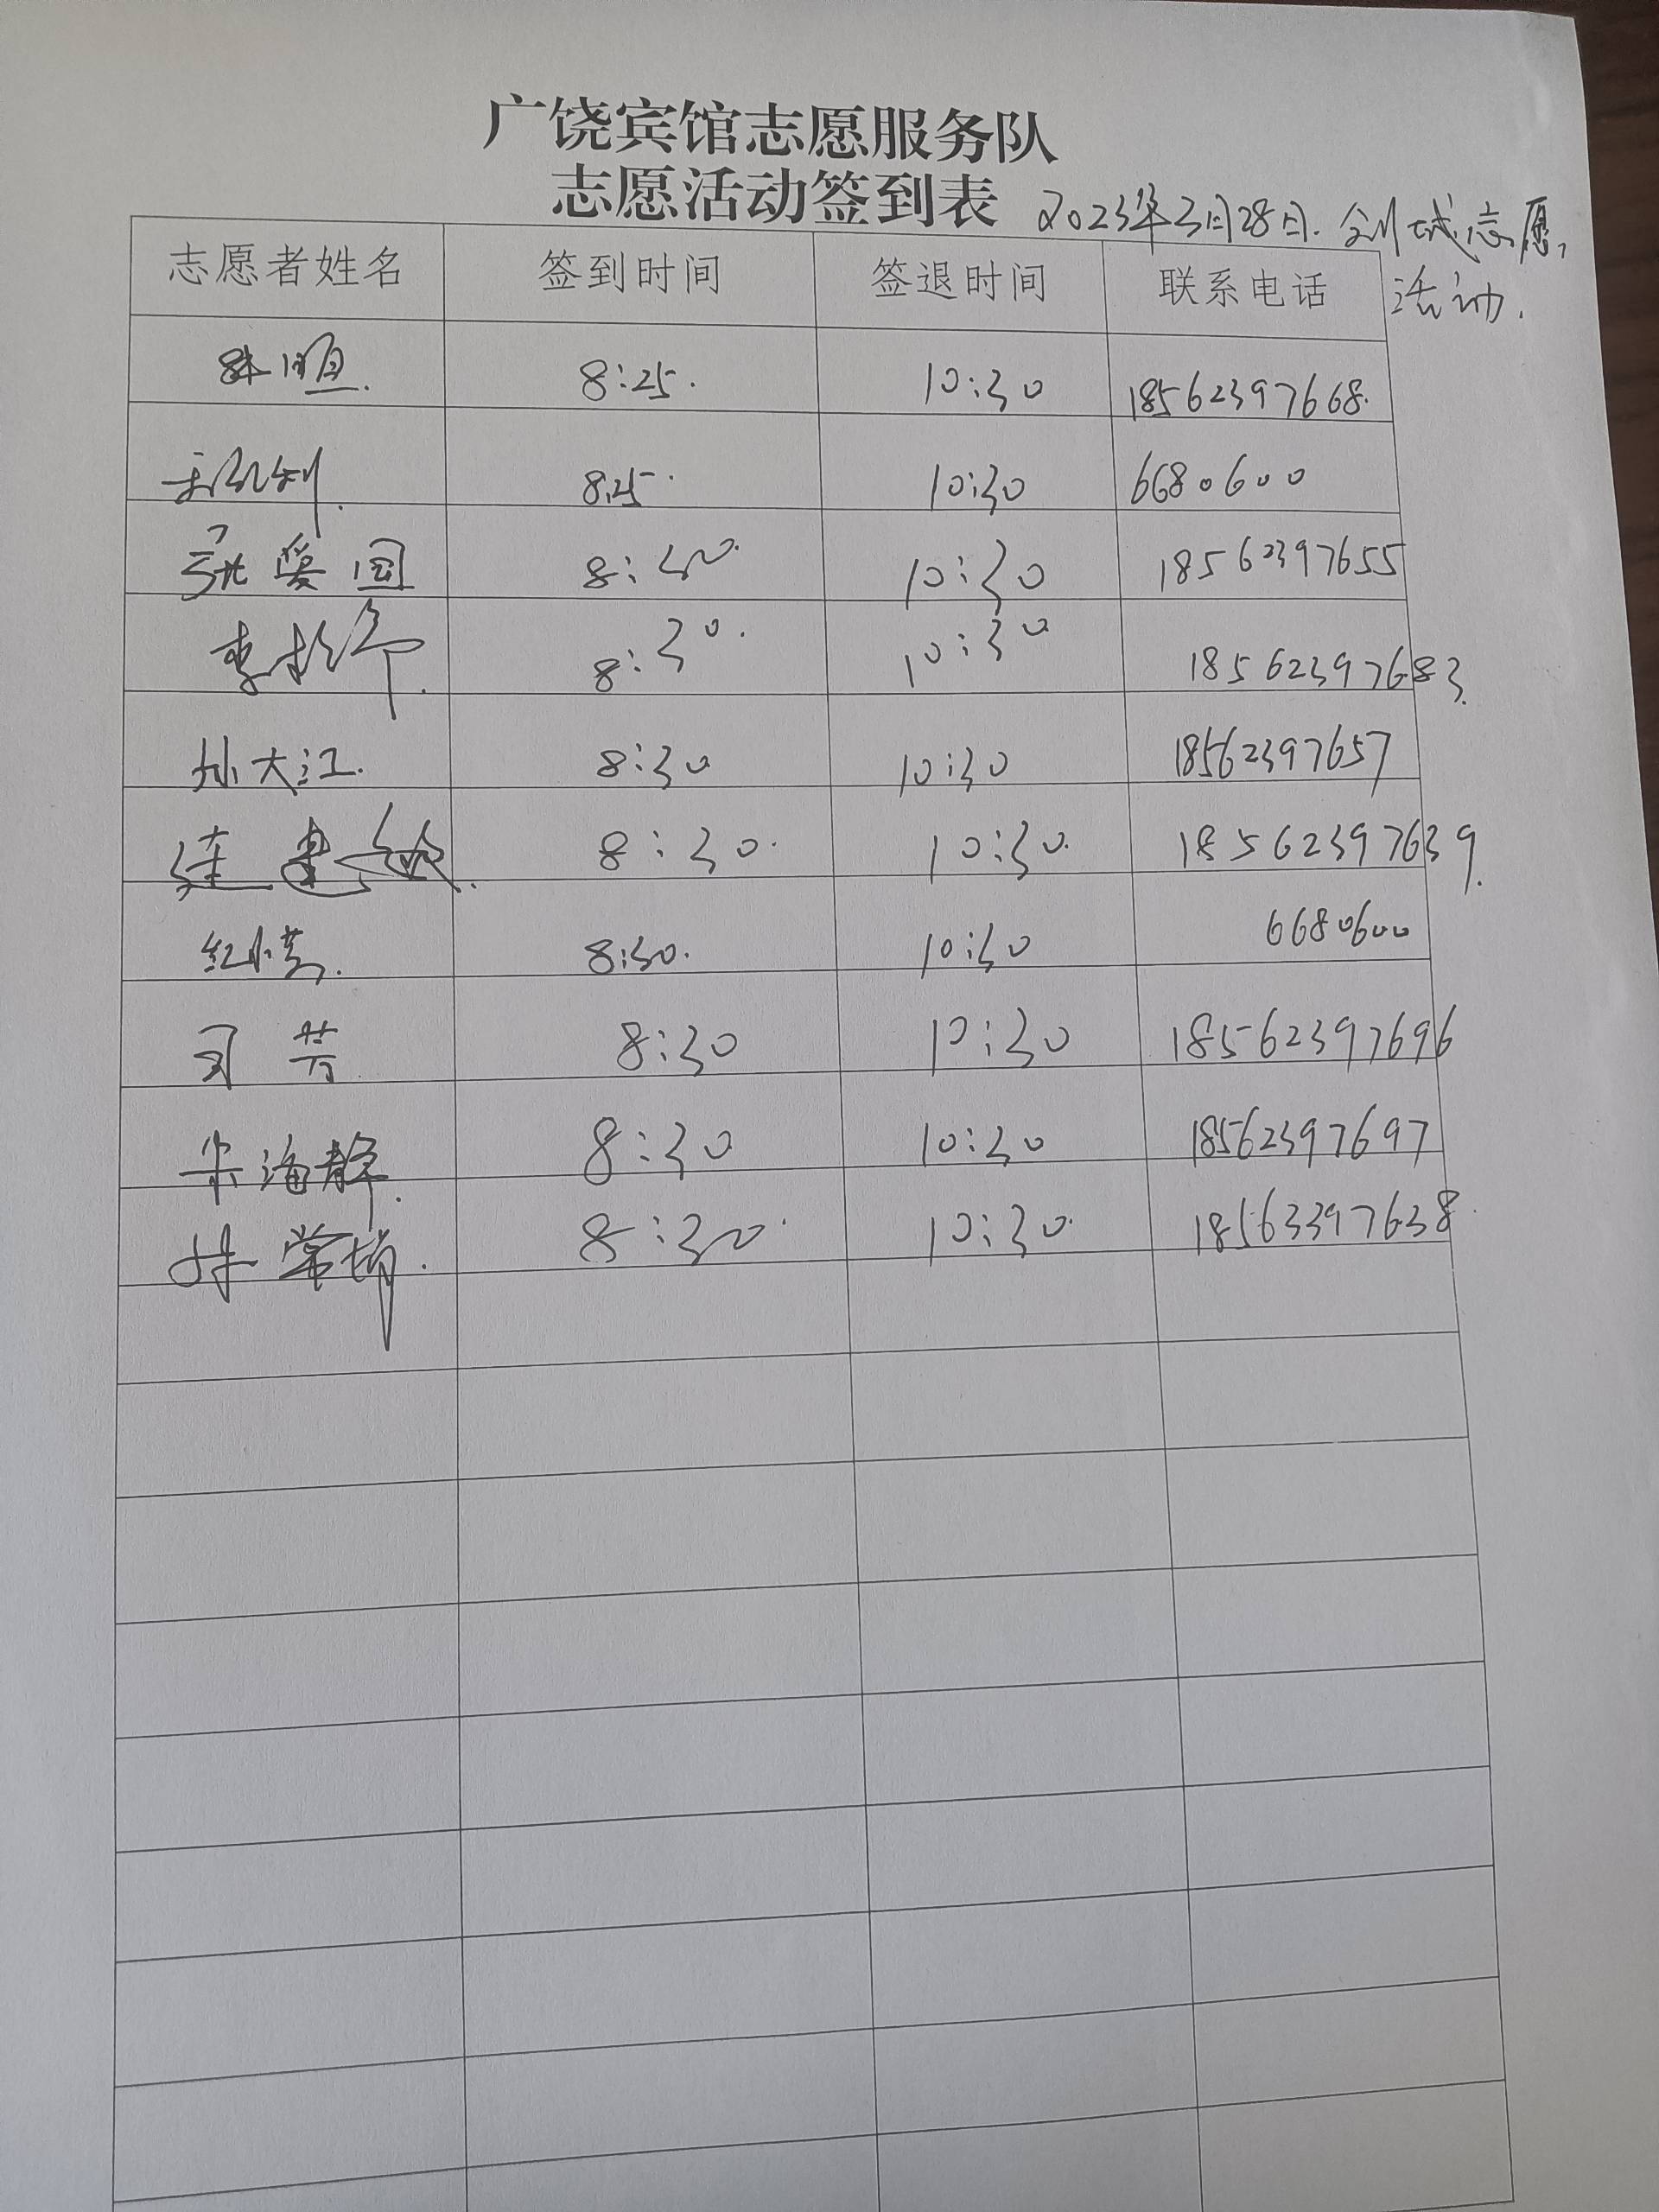 广饶宾馆志愿服务队
志愿活动签到表 2023年3月28日. 创城志愿
活动.
志愿者姓名 签到时间 签退时间 联系电话
8:25. 10:30 18562397668.
8:25. 10:30 6680600
张爱国 8:30. 10:30 18562397655
李 8:30. 10:30 18562397683.
孙大江. 8:30 10:30 18562397657
连 8:30. 10:30. 18562397639.
红小燕. 8:30. 10:30 6680600
司芳 8:30 10:30 18562397696
朱海静. 8:30 10:30 18562397697
8:30. 10:30. 18563397638.